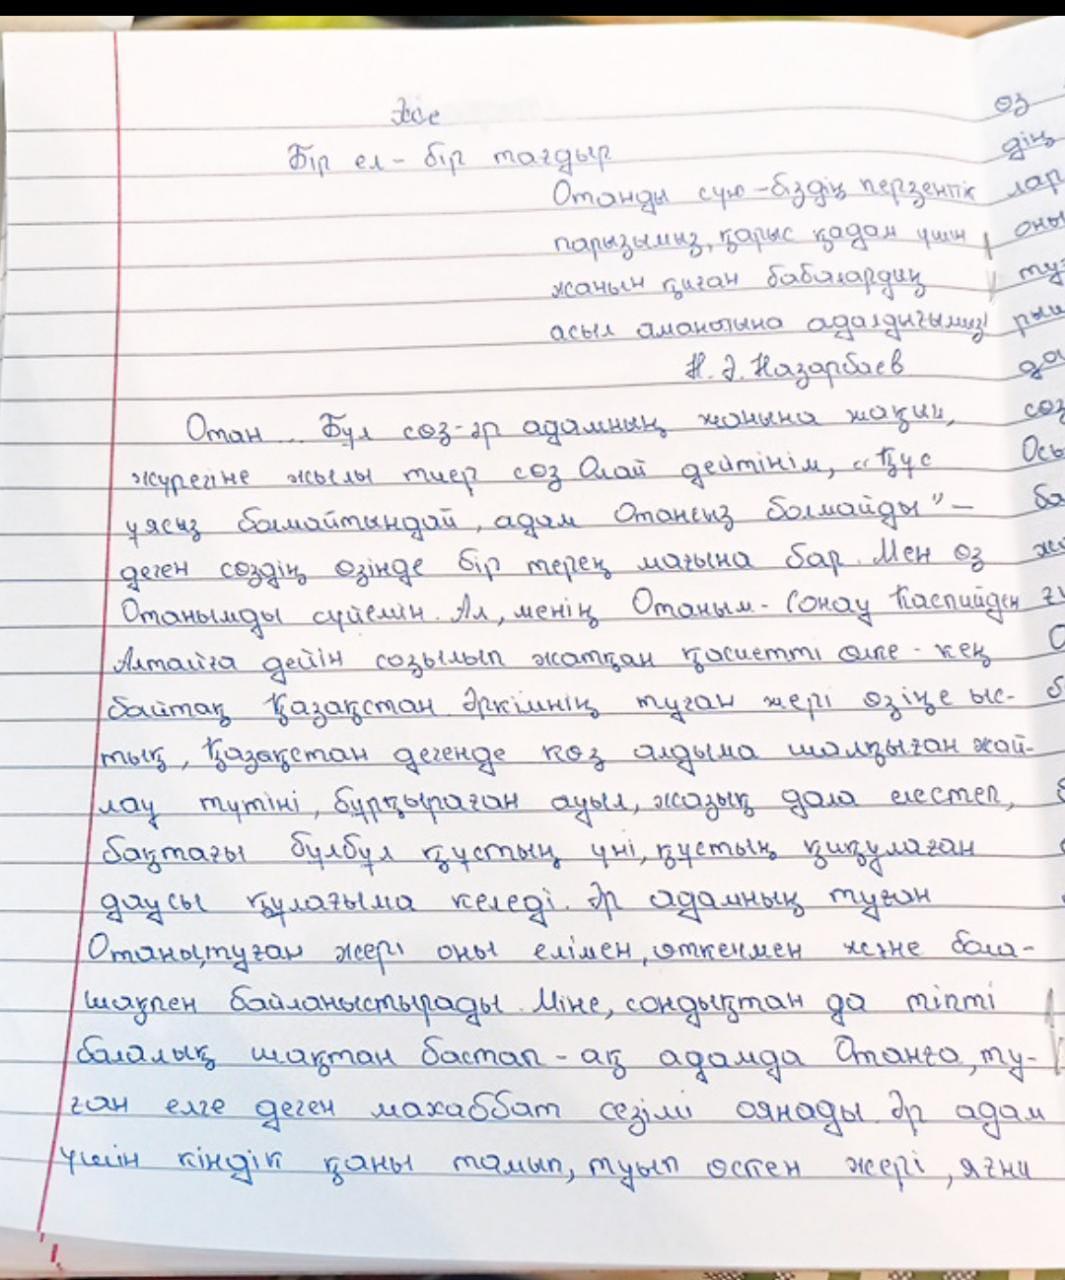 Эссе
Бір ел - бір тағдыр
Отанды сүю - біздің перзенттік
парызымыз, қарыс қадам үшін
жанын қиған бабалардың
асыл аманатына адалдығымыз!
Н. Ә. Назарбаев
Отан ... Бұл сөз-әр адамның жанына жақын,
жүрегіне жылы тиер сөз. Олай дейтінім, "Құс
ұясыз болмайтындай, адам Отансыз болмайды" -
деген сөздің өзінде бір терең мағына бар. Мен өз
Отанымды сүйемін. Ал, менің Отаным - Сонау Каспийден
Алтайға дейін созылып жатқан қасиетті өлке - кең
байтақ Қазақстан. Әркімнің туған жері өзіңе ыс-
тық, Қазақстан дегенде көз алдыма шалқыған жай-
лау түтіні, бұрқыраған ауыл, жазық дала елестеп,
бақтағы бұлбұл құстың үні, құстың қиқулаған
даусы құлағыма келеді. Әр адамның туған
Отаны, туған жері оны елімен, өткенмен және бола-
шақпен байланыстырады. Міне, сондықтан да тіпті
балалық шақтан бастап - ақ адамда Отанға, ту-
ған елге деген махаббат сезімі оянады. Әр адам
үшін кіндік қаны тамып, туып өскен жері, яғни
өз
дің
лар
оны
ту
рыш
да
сөз
Осы
ба